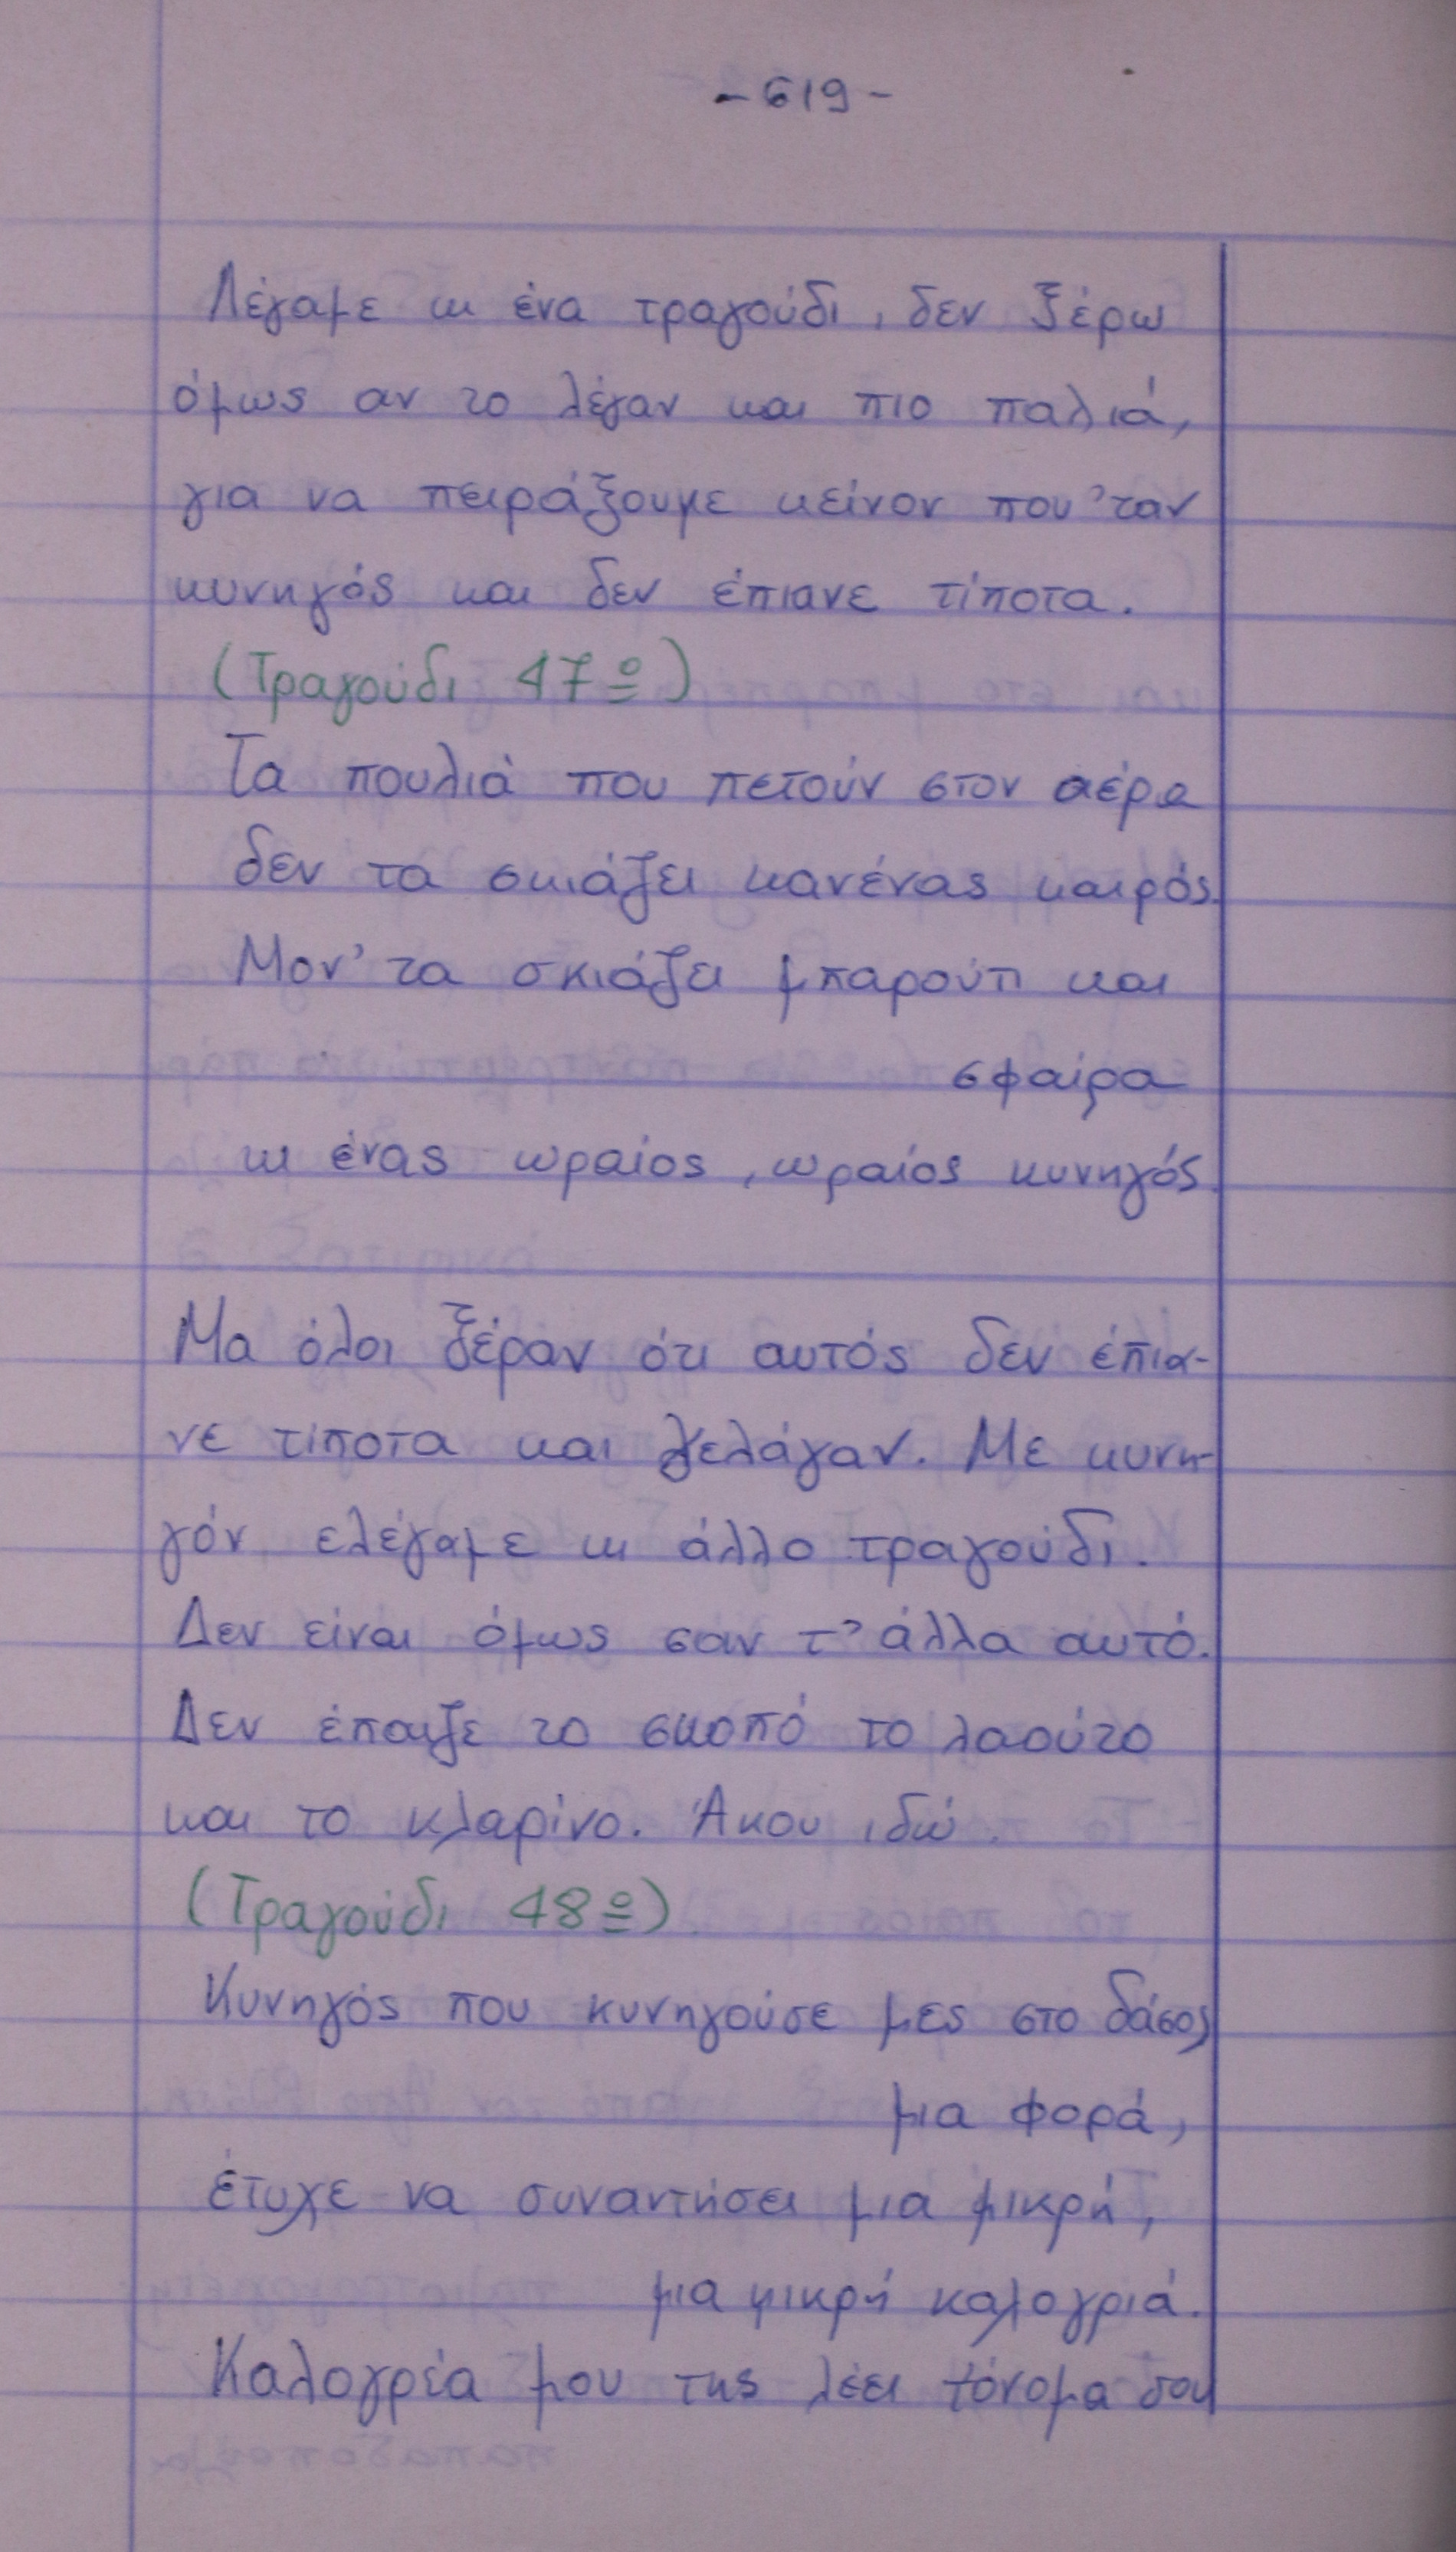 -619-
Λέγαμε κι ένα τραγούδι, δεν ξέρω
όμως αν το λέγαν και πιο παλιά,
για να πειράξουμε κείνον που 'ταν
κυνηγός και δεν έπιανε τίποτα.
(Τραγούδι 47ο)
Τα πουλιά που πετούν στον αέρα
δεν τα σκιάζει κανένας καιρός.
Μον' τα σκιάζει μπαρούτι και
σφαίρα
κι ένας ωραίος, ωραίος κυνηγός.
Μα όλοι ξέραν ότι αυτός δεν έπια-
νε τίποτα και γελάγαν. Με κυνη-
γόν ελέγαμε κι άλλο τραγούδι.
Δεν είναι όμως σαν τ' άλλα αυτό.
Δεν έπαιζε το σκοπό το λαούτο
και το κλαρίνο. Άκου ιδώ.
(Τραγούδι 48ο)
Κυνηγός που κυνηγούσε μες στο δάσος
μια φορά,
έτυχε να συναντήσει μια μικρή,
μια μικρή καλογριά.
Καλογρέα μου της λέει τόνομα σου